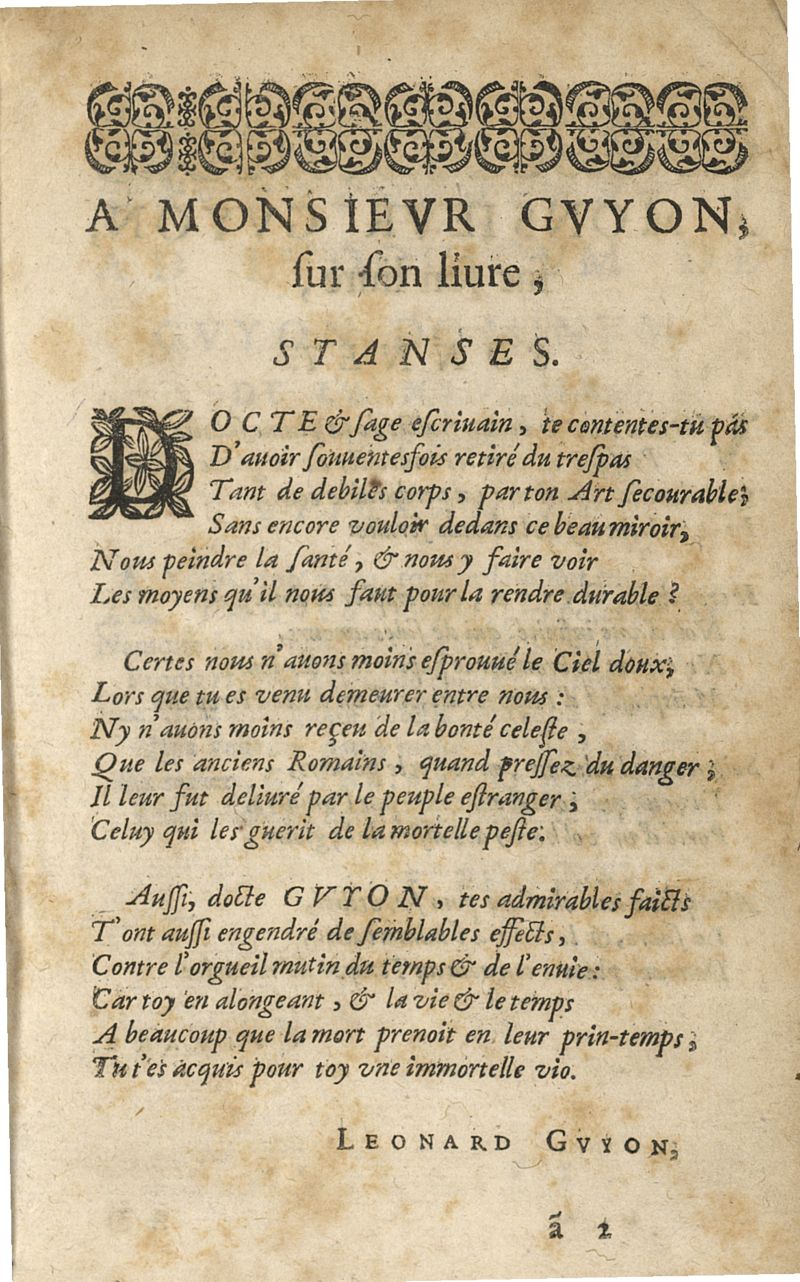 A MONSIEVR GVYON,
ſur ſon liure,
STANSES.
DOCTE & ſage eſcriuain, te contentes-tu pás
D'auoir ſouuentesfois retiré du treſpas
Tant de debiles corps, par ton Art ſecourable;
Sans encore vouloir dedans ce beau miroir,
Nous peindre la ſanté, & nous y faire voir
Les moyens qu'il nous faut pour la rendre durable ?
Certes nous n'auons moins eſprouué le Ciel doux;
Lors que tu es venu demeurer entre nous :
Ny n'auons moins reçeu de la bonté celeſte,
Que les anciens Romains, quand preſſez du danger;
Il leur fut deliuré par le peuple eſtranger;
Celuy qui les guerit de la mortelle peſte.
Auſſi, docte GVYON, tes admirables faicts
T'ont auſſi engendré de ſemblables effects,
Contre l'orgueil mutin du temps & de l'enuie:
Car toy en alongeant, & la vie & le temps
A beaucoup que la mort prenoit en leur prin-temps;
Tu t'es acquis pour toy vne immortelle vio.
LEONARD GVYON,
ã 2